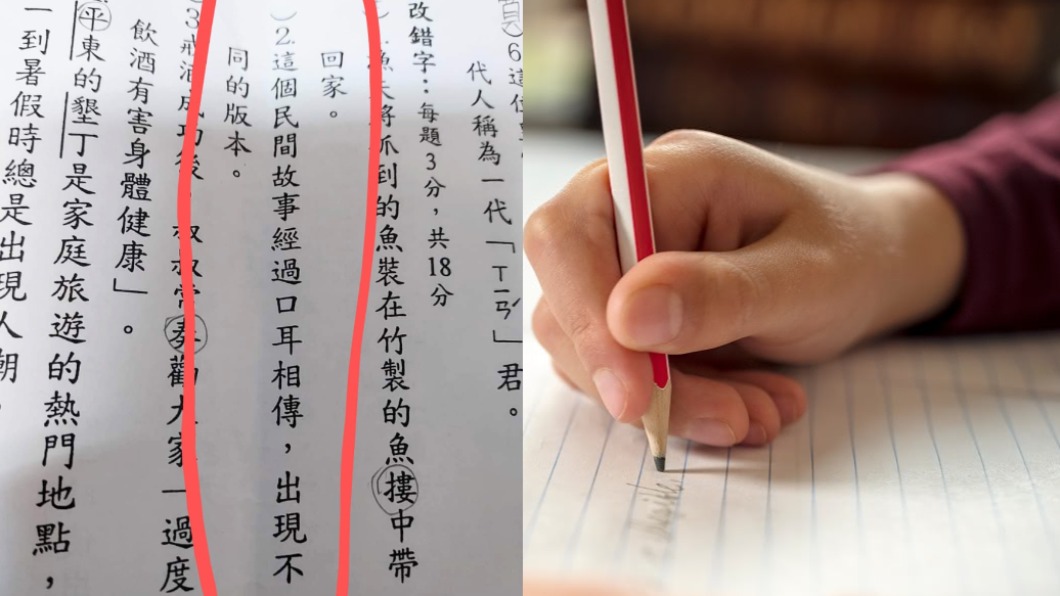 ）6.這位
代人稱為一代「ㄒㄧㄢˊ」君。
改錯字：每題3分，共18分
）1.漁夫將抓到的魚裝在竹製的魚摟中帶
回家。
）2.這個民間故事經過口耳相傳，出現不
同的版本。
）3.戒酒成功後，叔叔常奏勸大家「過度
飲酒有害身體健康」。
平東的墾丁是家庭旅遊的熱門地點，
一到暑假時總是出現人潮。